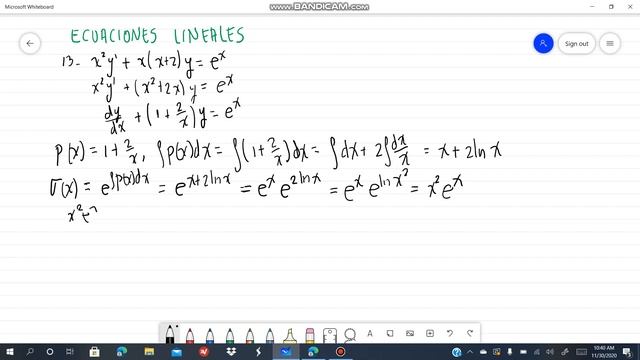 Microsoft Whiteboard
WWW.BANDICAM.COM
Sign out
ECUACIONES LINEALES
13- x²y' + x(x+2)y = eˣ
x²y' + (x²+2x)y = eˣ
dy/dx + (1+2/x)y = eˣ
P(x) = 1+2/x, ∫P(x)dx = ∫(1+2/x)dx = ∫dx + 2∫dx/x = x + 2 ln x
σ(x) = e^∫P(x)dx = e^x+2lnx = eˣ e^2lnx = eˣ e^lnx² = x² eˣ
x²e
10:40 AM
11/30/2020